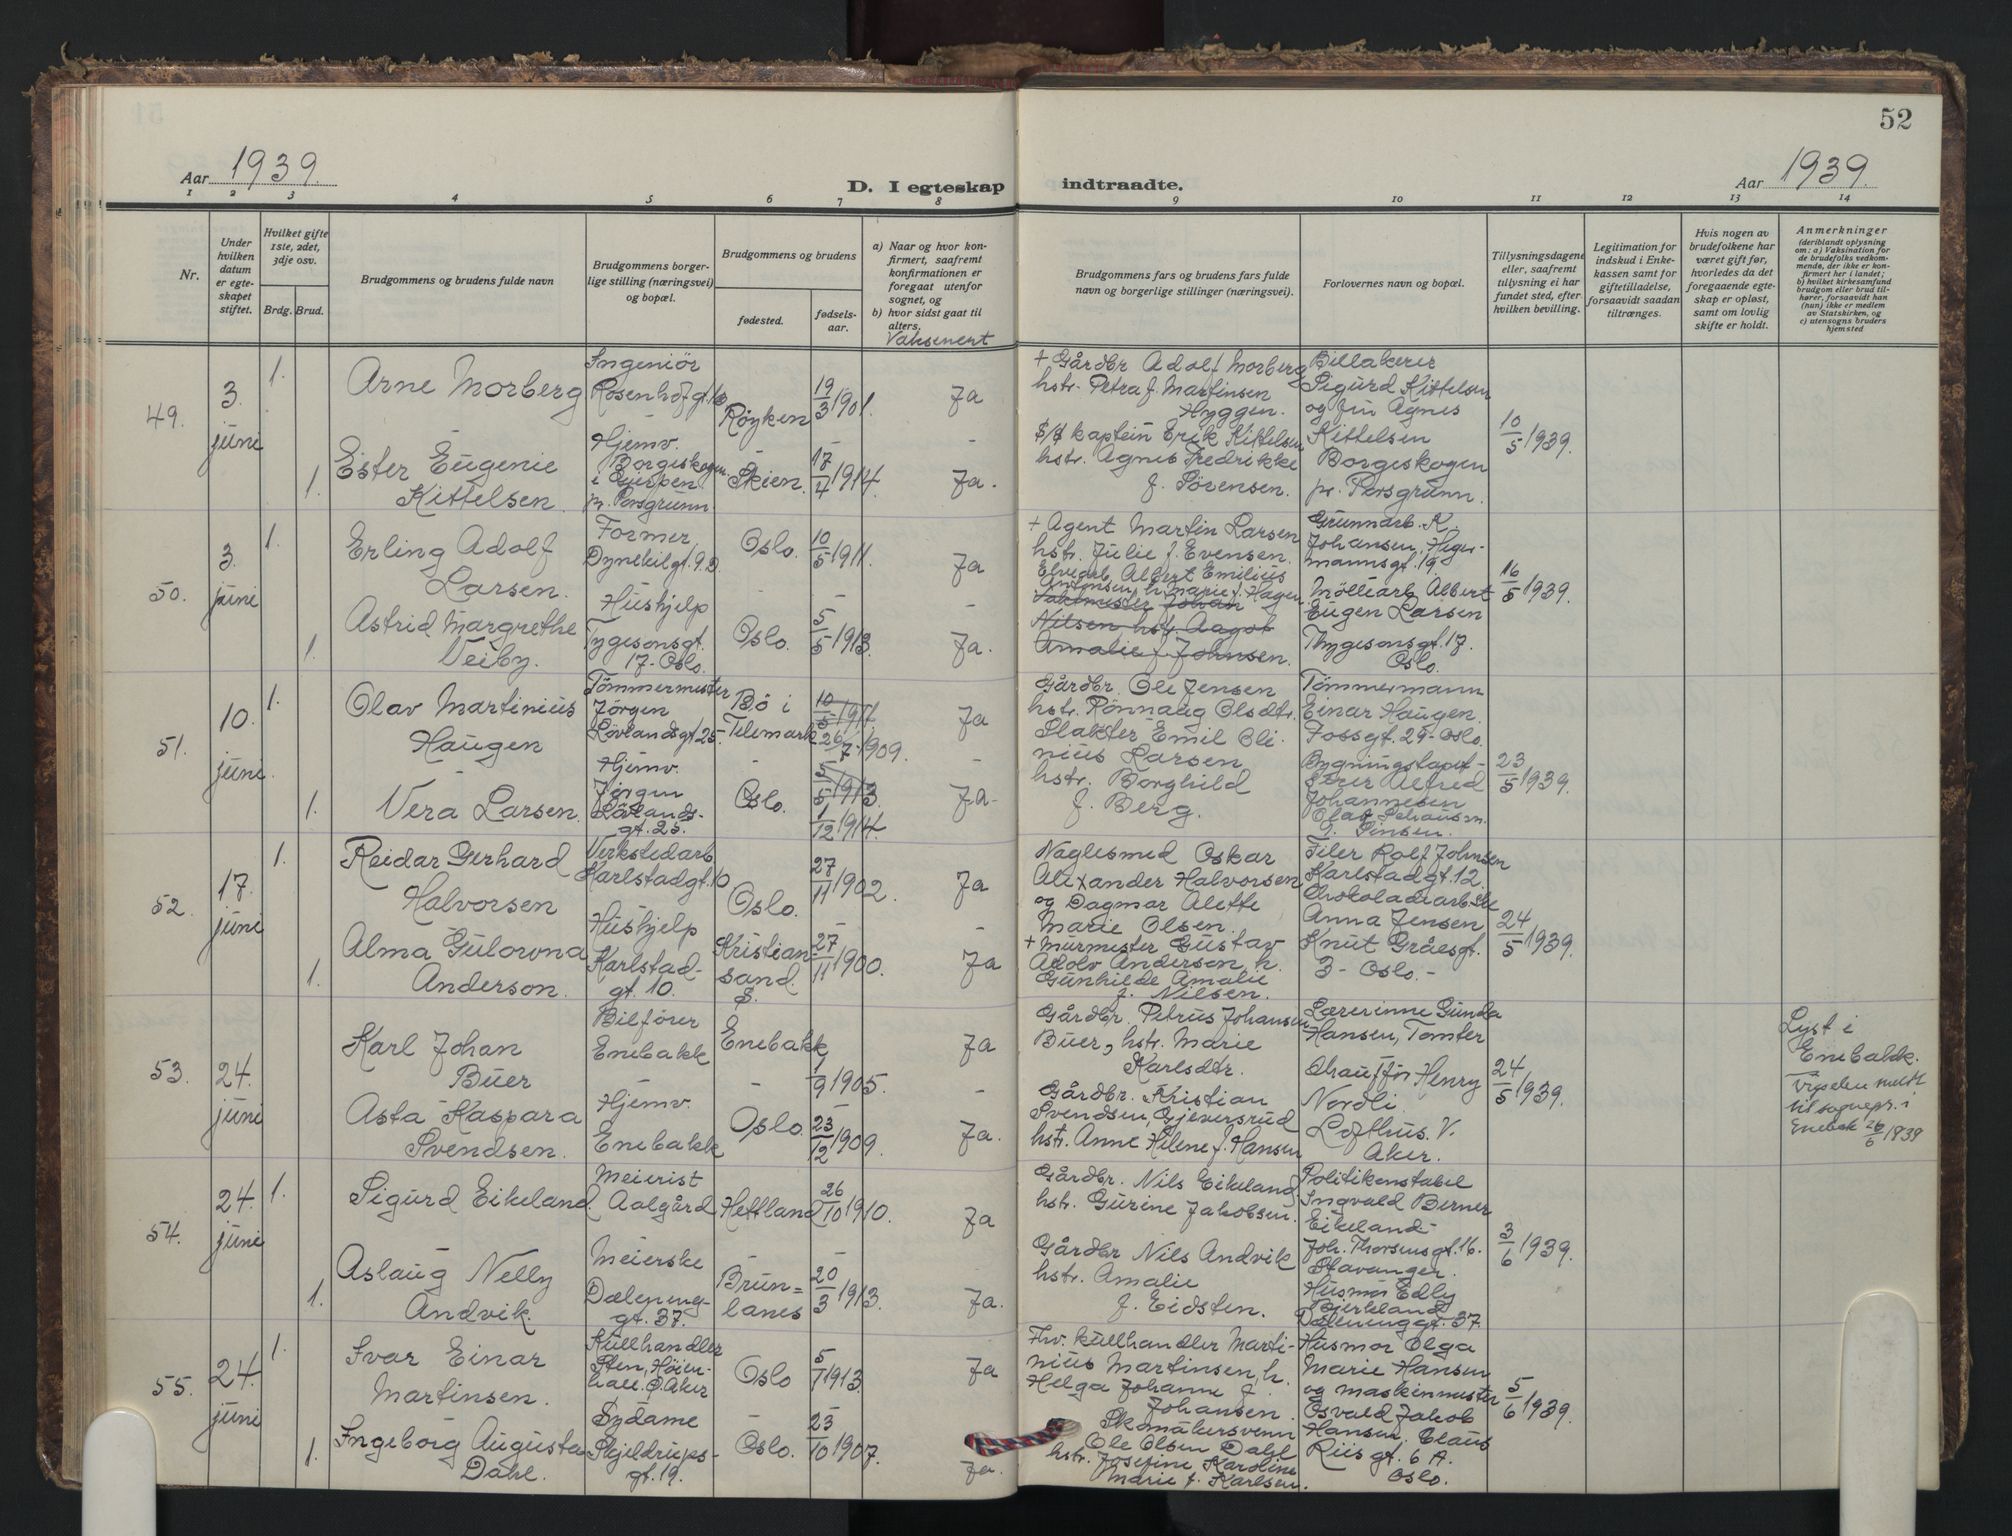 52
Aar 1939.
D. I egteskap indtraadte.
Aar 1939.
1 2 3 4 5 6 7 8 9 10 11 12 13 14
Nr.
Under hvilken datum er egte-skapet stiftet.
Hvilket gifte 1ste, 2det, 3dje osv.
Brdg. Brud.
Brudgommens og brudens fulde navn
Brudgommens borger-lige stilling (næringsvei) og bopæl.
Brudgommens og brudens
fødested.
fødsels-aar.
a) Naar og hvor kon-firmert, saafremt konfirmationen er foregaat utenfor sognet, og
b) hvor sidst gaat til alters.
Vaksinert
Brudgommens fars og brudens fars fulde navn og borgerlige stillinger (næringsvei).
Forlovernes navn og bopæl.
Tillysningsdagene eller, saafremt tillysning ei har fundet sted, efter hvilken bevilling.
Legitimation for indskud i Enke-kassen samt for giftetilladelse, forsaavidt saadan tiltrænges.
Hvis nogen av brudefolkene har været gift før, hvorledes da det foregaaende egte-skap er opløst, samt om lovlig skifte er holdt.
Anmerkninger
(deriblandt oplysning om: a) Vaksination for de brudefolks vedkom-mende, der ikke er kon-firmert her i landet;
b) hvilket kirkesamfund brudgom eller brud til-hører, forsaavidt han (hun) ikke er medlem av Statskirken, og
c) utensogns bruders hjemsted
49.
3. juni
1.
Arne Morberg
Ingeniør
Rosenhofgt.
Røyken
19/3 1901.
Ja
+ Gårdbr. Adolf Morberg
hstr. Petra f. Martinsen
Hyggen.
Billakerer
Sigurd Kittelsen
og fru Agnes
Kittelsen
Borgeskogen
pr. Porsgrunn.
10/5 1939.
1.
Ester Eugenie
Kittelsen.
Hjemv.
Borgeskogen
i Gjerpen
pr. Porsgrunn.
Skien.
17/4 1914.
Ja.
kaptein Erik Kittelsen
hstr. Agnes Fredrikke
f. Sørensen.
50.
3. juni
1.
Erling Adolf
Larsen.
Former,
Dynekilgt. 9.D.
Oslo.
10/5 1911.
Ja
+ Agent Martin Larsen
hstr. Julie f. Evensen.
Grunnarb. K.
Johansen, Heger-
mannsgt. 19.
16/5 1939.
1.
Astrid Margrethe
Veiby.
Hushjelp
Tygesonsgt.
17 - Oslo.
Oslo.
5/5 1913.
Ja.
Elvearb. Albert Emilius
Antonsen, h. Marie f. Hagen
Vaktmester Johan
Nilsen hst. Aagot
Amalie f. Johnsen.
Møllearb. Albert
Eugen Larsen
Thygesonsgt. 17.
Oslo.
51.
10. juni.
1.
Olav Martinius
Haugen
Tømmermester
Jørgen
Løvlandsgt 25.
Bø i
Telemark
10/5 1911.
26/7 - 1909.
Ja
Gårdbr. Ole Jensen
hstr. Rønnaug Olsdtr.
Tømmermann
Einar Haugen.
Fossgt. 29 - Oslo.
23/5 1939.
1.
Vera Larsen.
Hjemv.
Jørgen
Løvlands-
gt. 25.
Oslo.
5/5 1913.
1/12 1914.
Ja.
Slakter Emil Oli-
nius Larsen
hstr. Borghild
f. Berg.
Bygningstapet-
serer Alfred
Johannesen
Olaf Schousn.
v. Sinsen.
52.
17. juni
1.
Reidar Gerhard
Halvorsen
Verkstedarb
Karlstadgt. 10
Oslo.
27/11 1902.
Ja
Naglesmed Oskar
Alexander Halvorsen
og Dagmar Alette
Marie Olsen.
Filer Rolf Johnsen
Karlstadgt. 12.
Chokoladearb.ske
Anna Jensen
Knut Gråesgt.
3 - Oslo. -
24/5 1939.
1.
Alma Gulowna
Anderson.
Hushjelp
Karlstad-
gt. 10.
Kristian-
sand
S.
27/11 1900.
Ja
+ Murmester Gustav
Adolv Anderson, h.
Gunhilde Amalie
f. Nilsen.
53.
24. juni
Karl Johan
Buer
Bilfører
Enebakk
Enebakk
1/9 1905.
Ja
Gårdbr. Petrus Johansen
Buer, hstr. Marie
Karlsdtr.
Lærerinne Gunda
Hansen, Tomter
24/5 1939.
Lyst i
Enebakk.
Vigselen meldt
til sognepr. i
Enebak 26/6 1939
Asta Kaspara
Svendsen.
Hjemv.
Enebakk
Oslo.
23/12 1909.
Ja.
Gårdbr. Kristian
Svendsen, Gjeversrud
hstr. Anne Helene f. Hansen
Chauffør Henry
Nordli.
Lofthus. V.
Aker.
54.
24. juni
1.
Sigurd Eikeland.
Meierist
Aalgård
Hetland
26/10 1910.
Ja
Gårdbr. Nils Eikeland
hstr. Gurine Jakobsen.
Politikonstabel
Ingvald Berner
Eikeland
Joh. Thorsensgt. 16.
Stavanger.
3/6 1939.
1.
Aslaug Nelly
Andvik.
Meierske
Dæleneng-
gt. 37.
Brun=
lanes
20/3 1913.
Ja.
Gårdbr Nils Andvik
hstr. Amalie
f. Eidsten.
Husmor Edly
Bjerkland
Dælenenggt. 37.
55.
24. juni
1.
Ivar Einar
Martinsen.
Kullhandler
Sten, Høien-
hall. Ø. Aker
Oslo
5/7 1913.
Ja
Fhv. kullhandler Marti-
nius Martinsen, h.
Helga Johanne f.
Johansen.
Husmor Olga
Marie Hansen
og maskinmester
Osvald Jakob
Hansen, Claus
Riis gt. 6 A.
Oslo.
5/6 1939.
1.
Ingeborg Augusta
Dahl.
Sydame
Skjeldrups-
gt. 19.
Oslo.
23/10 1907.
Ja.
Skomakersvenn
Ole Olsen Dahl
hstr. Josefine Karoline
Marie f. Karlsen.